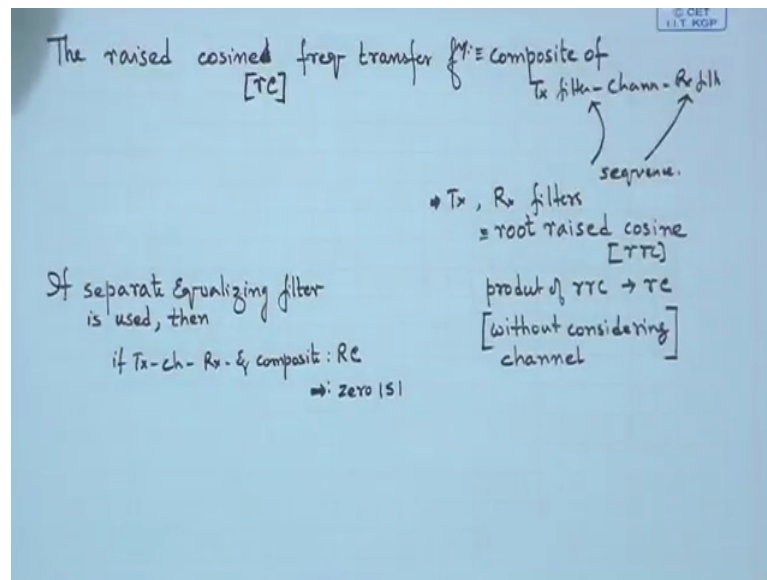 © CET
I.I.T. KGP
The raised cosined freqr transfer fn: ≡ composite of
[rc]
Tx filter - Chann - Rx filt
sequence.
➡ Tx, Rx filters
= root raised cosine
[rrc]
product of rrc → rc
[without considering
channel]
If separate Equalizing filter
is used, then
if Tx-ch-Rx-Eq composit: RC
➡: zero ISI